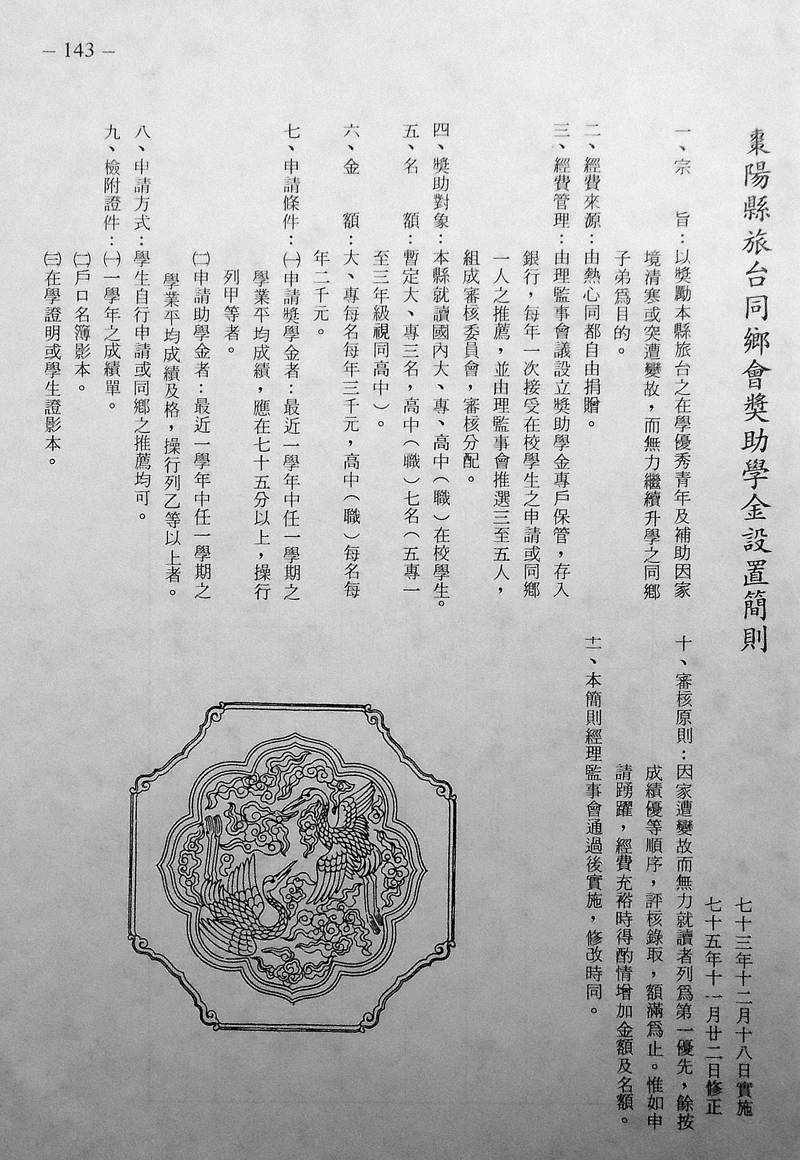 棗陽縣旅台同鄉會獎助學金設置簡則
七十三年十二月十八日實施
七十五年十一月廿二日修正
一、宗　　旨：以獎勵本縣旅台之在學優秀青年及補助因家
境清寒或突遭變故，而無力繼續升學之同鄉
子弟爲目的。
二、經費來源：由熱心同都自由捐贈。
三、經費管理：由理監事會議設立獎助學金專戶保管，存入
銀行，每年一次接受在校學生之申請或同鄉
一人之推薦，並由理監事會推選三至五人，
組成審核委員會，審核分配。
四、獎助對象：本縣就讀國內大、專、高中（職）在校學生。
五、名　　額：暫定大、專三名，高中（職）七名（五專一
至三年級視同高中）。
六、金　　額：大、專每名每年三千元，高中（職）每名每
年二千元。
七、申請條件：㈠申請獎學金者：最近一學年中任一學期之
學業平均成績，應在七十五分以上，操行
列甲等者。
㈡申請助學金者：最近一學年中任一學期之
學業平均成績及格，操行列乙等以上者。
八、申請方式：學生自行申請或同鄉之推薦均可。
九、檢附證件：㈠一學年之成績單。
㈡戶口名簿影本。
㈢在學證明或學生證影本。
十、審核原則：因家遭變故而無力就讀者列爲第一優先，餘按
成績優等順序，評核錄取，額滿爲止。惟如申
請踴躍，經費充裕時得酌情增加金額及名額。
十一、本簡則經理監事會通過後實施，修改時同。
– 143 –